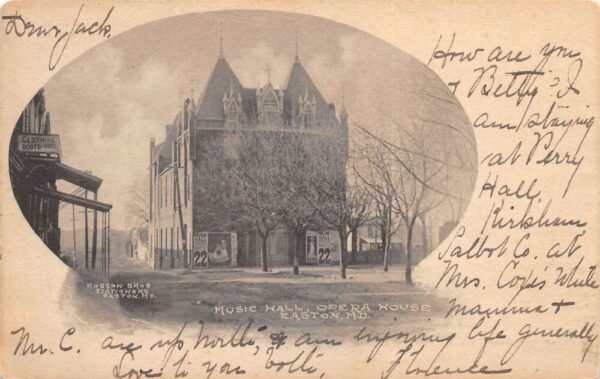 Dear Jack.
How are you
& Betty? I
am staying
at Perry
Hall,
Kirkham
Talbot Co. at
Mrs. Cox's While
Mamma &
Mr. C. are up North, & am enjoying life generally
Love to you both, Florence
CLOTHING
BOOTS
22
22
ROBSON BROS
STATIONERS
EASTON, MD.
MUSIC HALL, OPERA HOUSE
EASTON, MD.